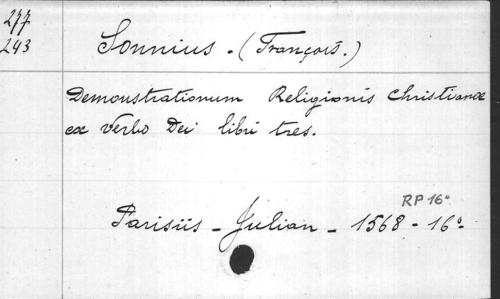 277
243
Sonnius. (François.)
Demonstrationum Religionis Christianæ
ex verbo Dei libri tres.
RP 16°
Parisiis - Julian - 1568 - 16°